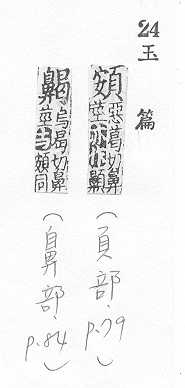 24
玉篇
頞惡葛切鼻莖亦作齃
(頁部. p.79)
齃烏曷切鼻莖頞同
(鼻部. p.84)